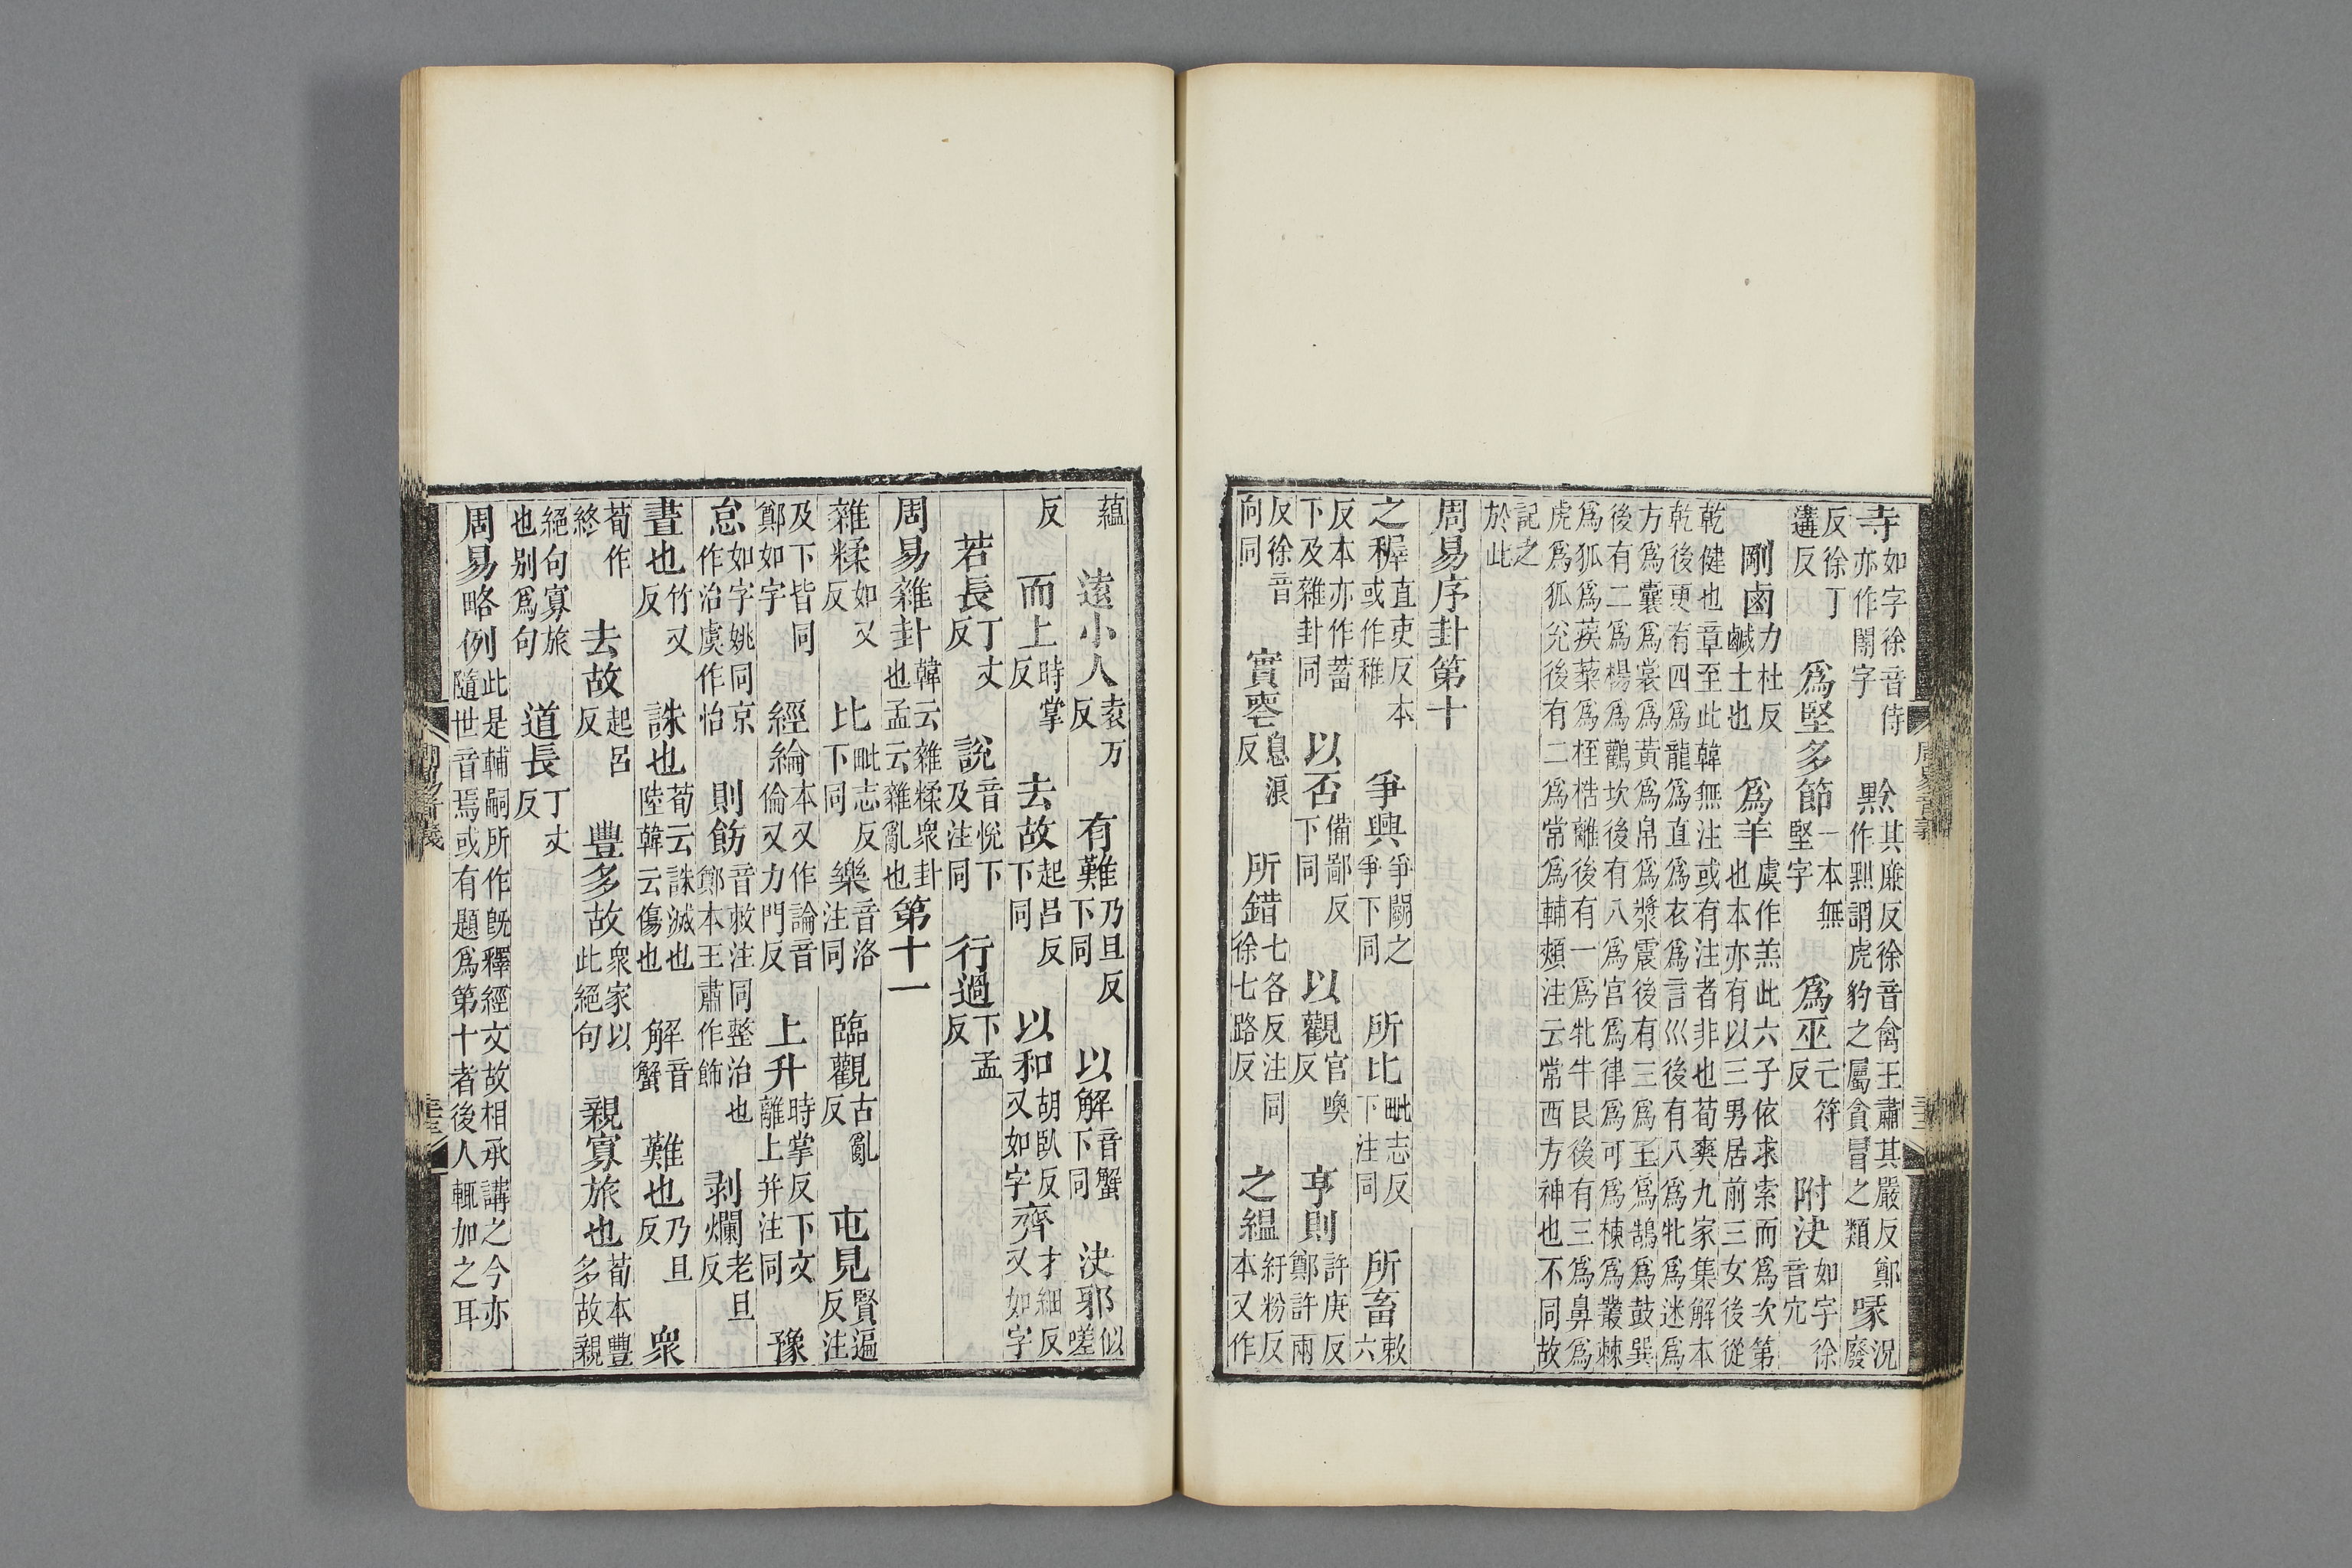 寺如字徐音侍亦作閽字黔其廉反徐音禽王肅其嚴反鄭作黚謂虎豹之屬貪冒之類喙況廢
反徐丁遘反爲堅多節一本無堅字爲巫亡符反附決如字徐音穴
剛鹵力杜反鹹土也爲羊虞作羔此六子依求索而爲次第也本亦有以三男居前三女後從
乾健也章至此韓無注或有注者非也荀爽九家集解本乾後更有四爲龍爲直爲衣爲言巛後有八爲牝爲迷爲
方爲囊爲裳爲黃爲帛爲漿震後有三爲玉爲鵠爲鼓巽後有二爲楊爲鸛坎後有八爲宮爲律爲可爲棟爲叢棘
爲狐爲蒺蔾爲桎梏離後有一爲牝牛艮後有三爲鼻爲虎爲狐兌後有二爲常爲輔頰注云常西方神也不同故
記之於此
周易序卦第十
之穉直吏反本或作稚爭興爭鬭之爭下同所比毗志反下注同所畜敕六
反本亦作蓄下及雜卦同以否備鄙反下同以觀官喚反亨則許庚反鄭許兩
反徐音向同實喪息浪反所錯七各反注同徐七路反之縕紆粉反本又作
周易音義
蘊遠小人袁万反有難乃旦反下同以解音蟹下同決邪似嗟
反而上時掌反去故起呂反下同以和胡臥反又如字齊才細反又如字
若長丁丈反說音悅下及注同行過下孟反
周易雜卦韓云雜糅衆卦也孟云雜亂也第十一
雜糅如又反比毗志反下同樂音洛注同臨觀古亂反屯見賢遍反注
及下皆同鄭如字經綸本又作論音倫又力門反上升時掌反下文離上并注同豫
怠如字姚同京作治虞作怡則飭音敕注同整治也鄭本王肅作飾剥爛老旦反
晝也竹又反誅也荀云誅滅也陸韓云傷也解音蟹難也乃旦反衆
荀作終去故起呂反豐多故衆家以此絕句親寡旅也荀本豐多故親
絕句寡旅也別爲句道長丁丈反
周易略例此是輔嗣所作旣釋經文故相承講之今亦隨世音焉或有題爲第十者後人輒加之耳